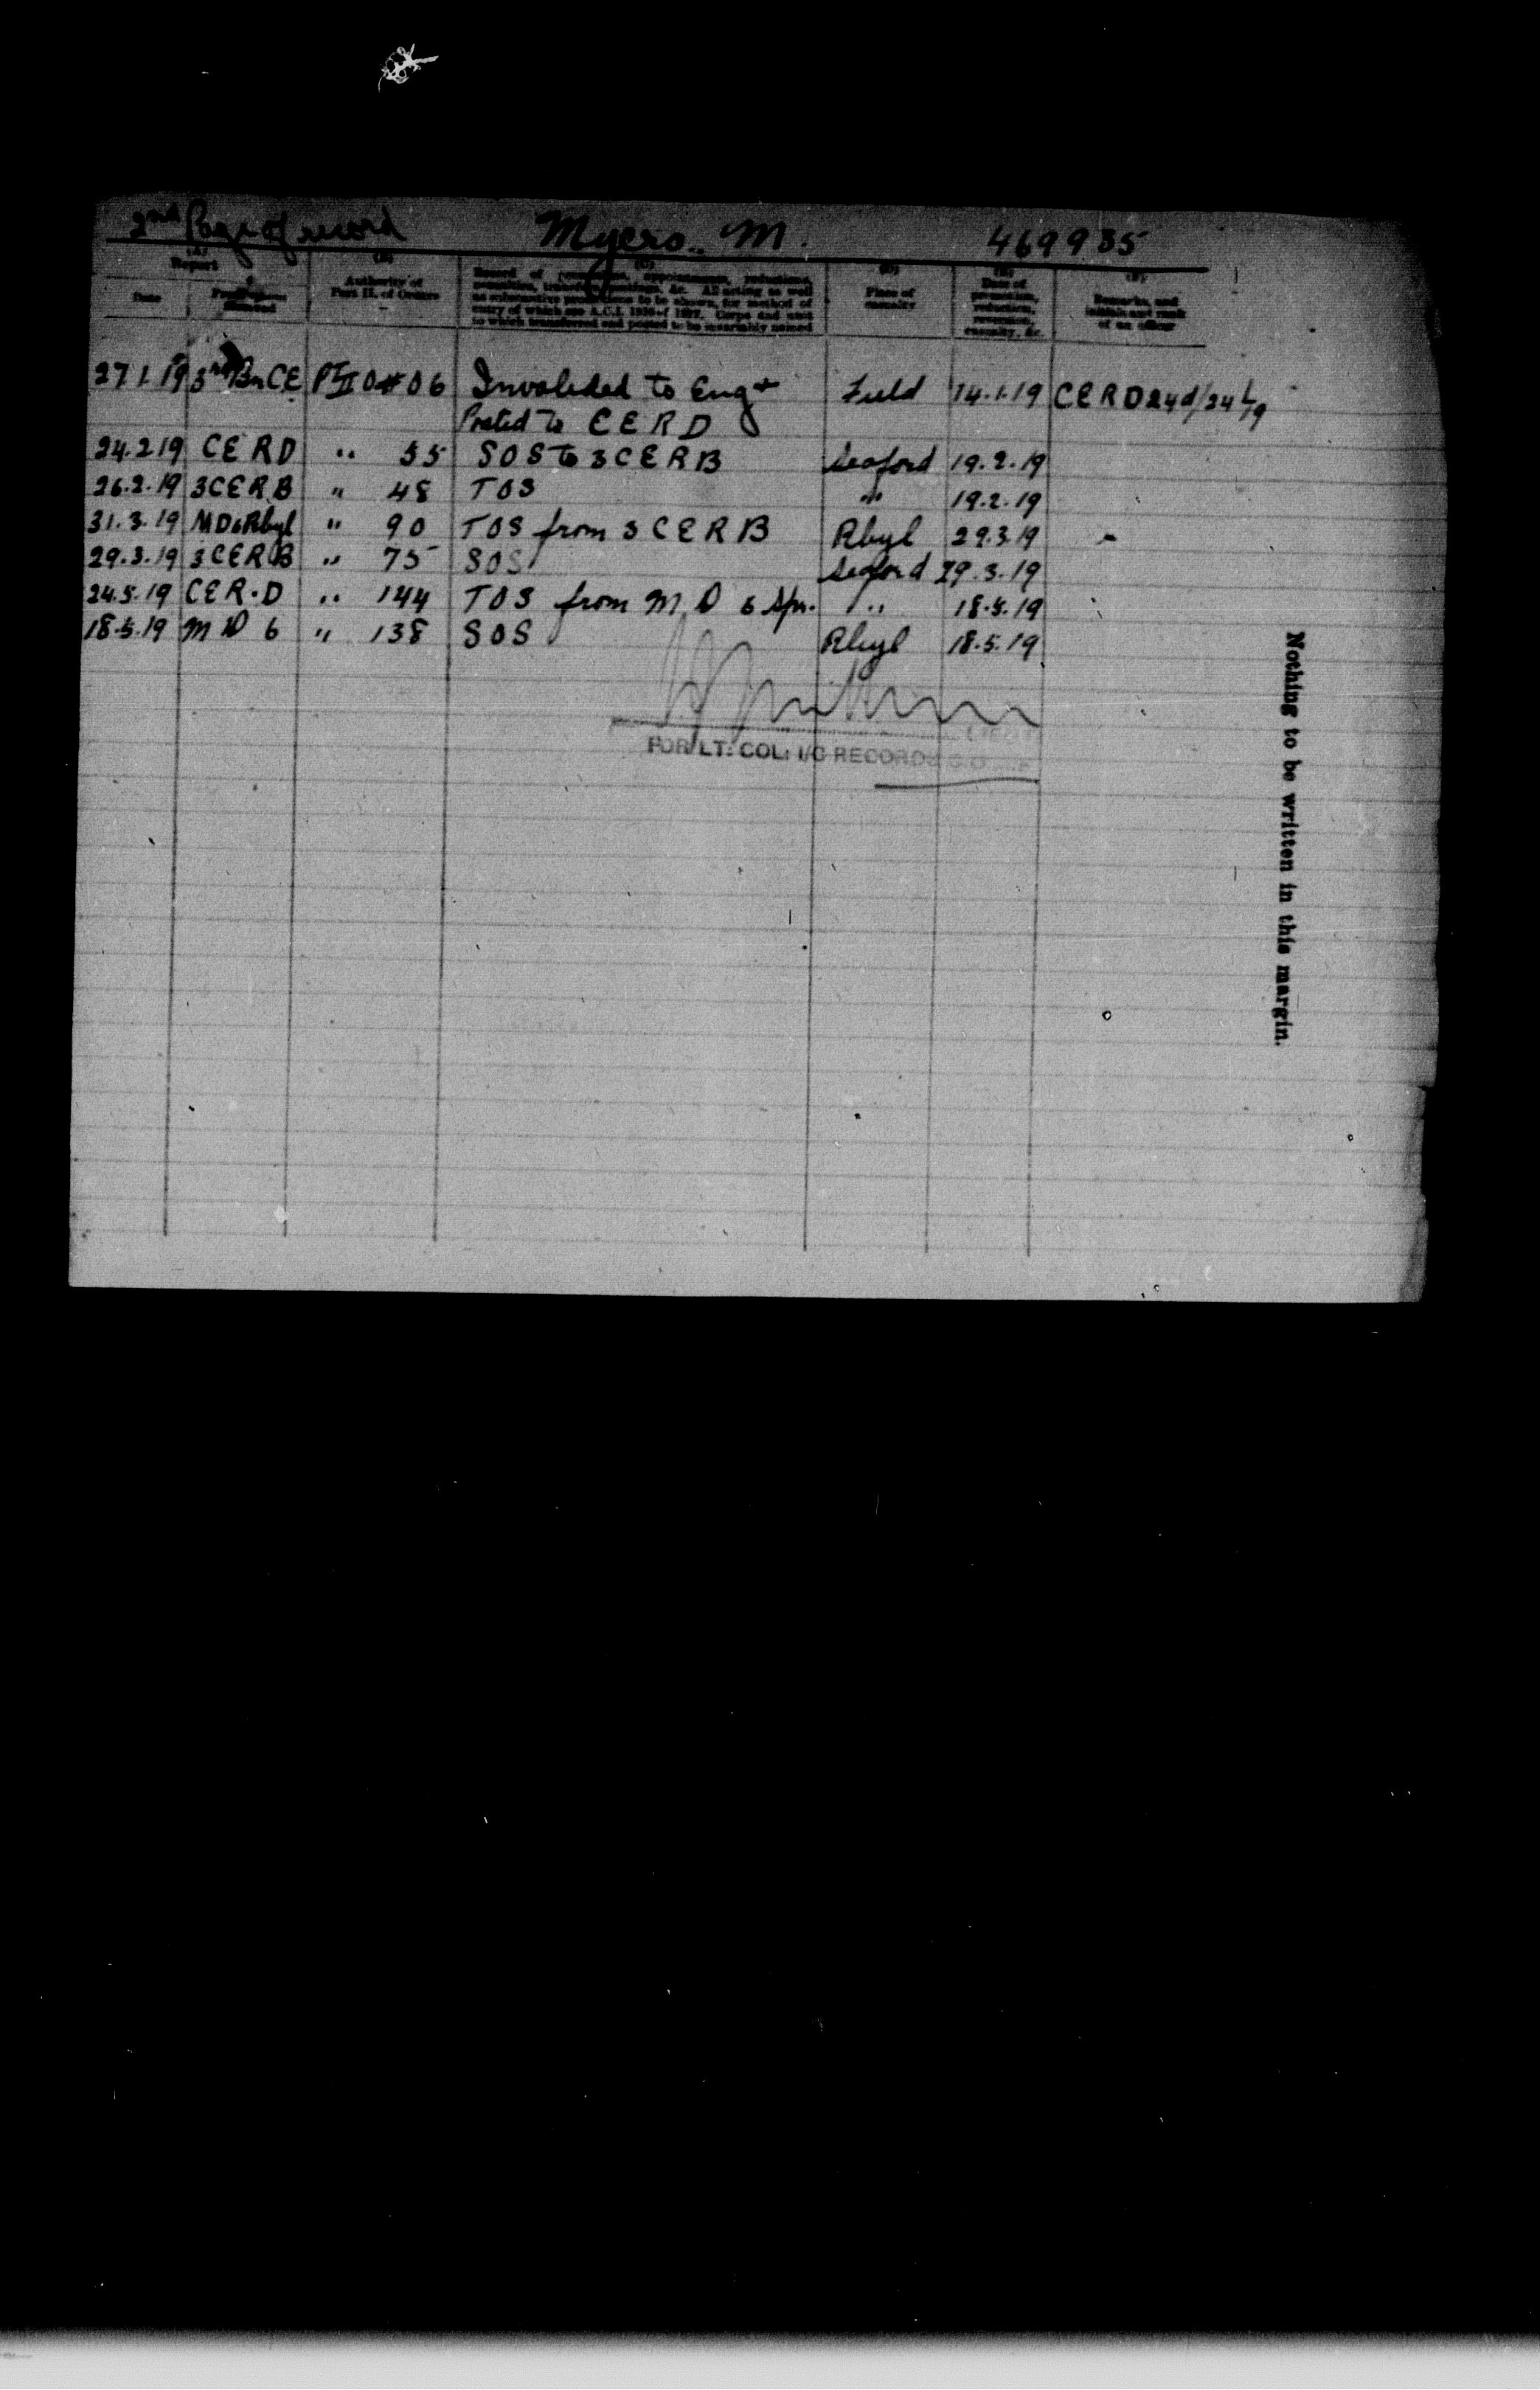 2nd Page of record Myers. M. 469935
(A) Report (B) Authority of Part II. of Orders (C) Record of promotions, appointments, reductions,
Date (D) Place of casualty (E) Date of promotion, reduction, casualty, &c. (F) Remarks, and initials and rank of an officer
entry of which see A.C.I. 1816 of 1917. Corps and unit
to which transferred and posted to be invariably named
27.1.19 3rd Bn CE Pt II O # 06 Invalided to Engd Field 14.1.19 CERD 24d/24/1/19
Posted to CERD
24.2.19 CERD " 55 SOS to 3CERB Seaford 19.2.19
26.2.19 3CERB " 48 TOS " 19.2.19
31.3.19 MD6 Rhyl " 90 TOS from 3CERB Rhyl 29.3.19
29.3.19 3CERB " 75 SOS Seaford 29.3.19
24.5.19 CER.D " 144 TOS from MD 6 Spr. " 18.5.19
18.5.19 MD 6 " 138 SOS Rhyl 18.5.19
FOR LT: COL: I/C RECORDS
Nothing to be written in this margin.